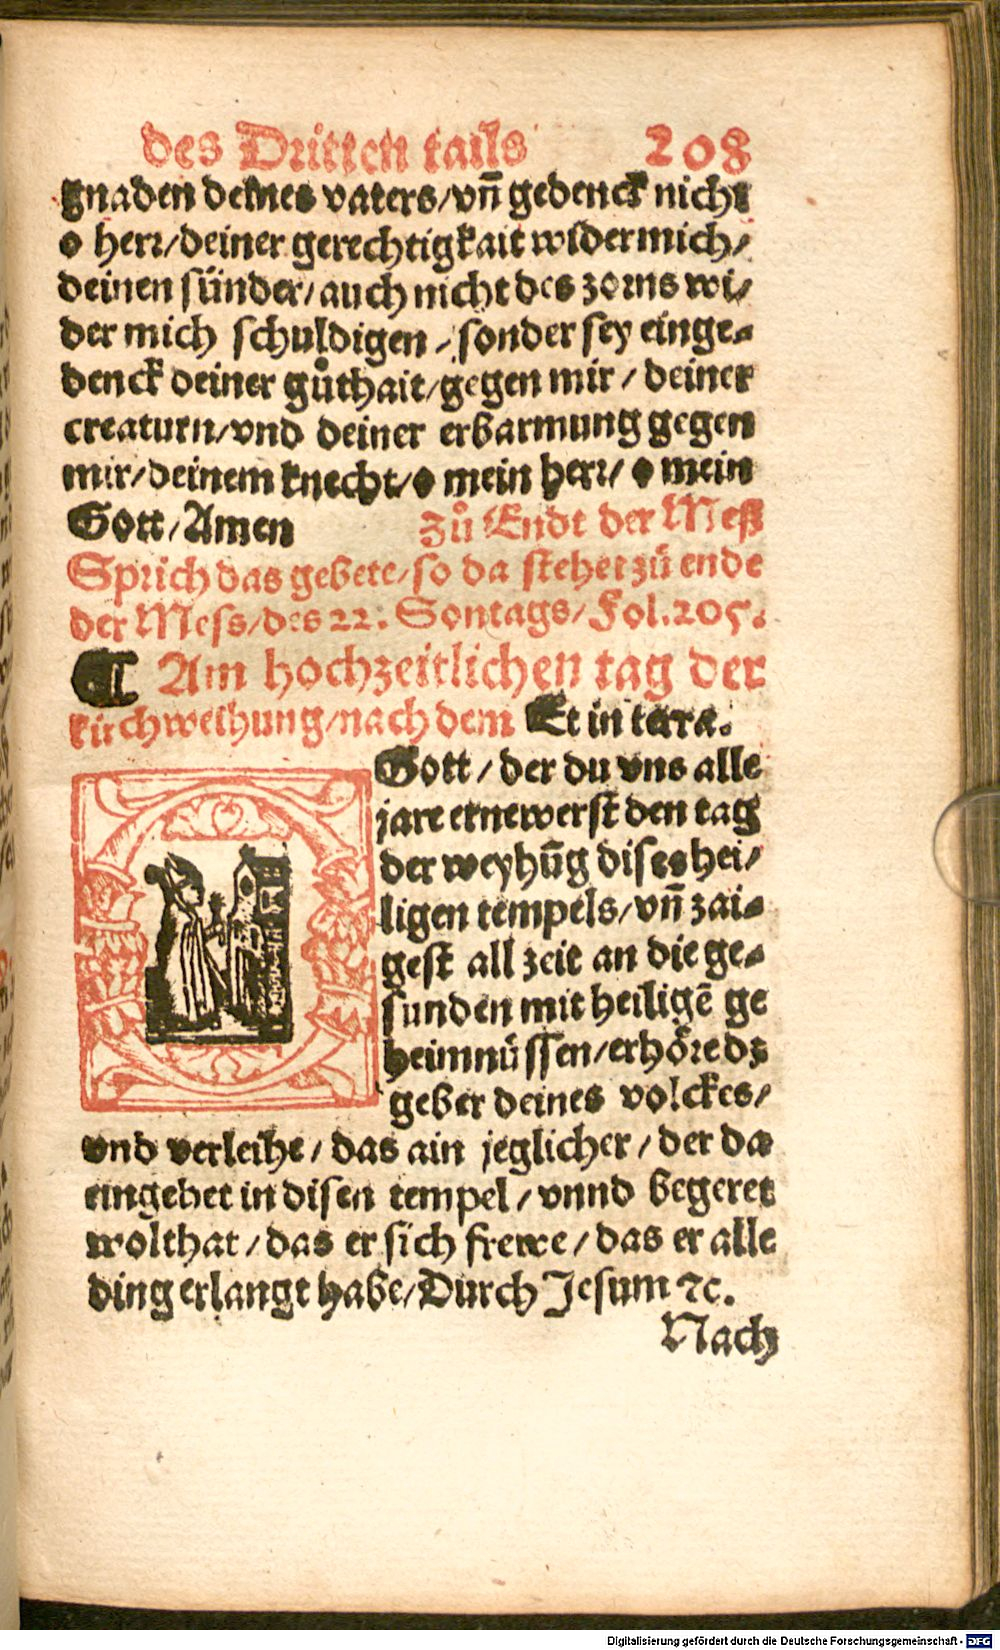 des Dritten tails 208
gnaden deines vaters/vñ gedenck nicht
o herr/deiner gerechtigkait wider mich/
deinen sünder/auch nicht des zorns wi/
der mich schuldigen/sonder sey einge⸗
denck deiner gůthait/gegen mir/deiner
creaturn/vnd deiner erbarmung gegen
mir/deinem knecht/o mein herr/o mein
Gott/Amen zů Endt der Meß
Sprich das gebete/so da stehet zů ende
der Mess/des 22. Sontags/Fol.205.
¶ Am hochzeitlichen tag der
kirchweihung/nach dem Et in terra.
Gott/der du vns alle
jare ernewerst den tag
der weyhũg dises hei/
ligen tempels/vñ zai⸗
gest all zeit an die ge⸗
sunden mit heiligē ge
heimnüssen/erhöre dz
gebet deines volckes/
vnd verleihe/das ain jeglicher/der da
eingehet in disen tempel/vnnd begeret
wolthat/das er sich frewe/das er alle
ding erlangt habe/Durch Jesum ⁊c.
Nach
Digitalisierung gefördert durch die Deutsche Forschungsgemeinschaft - DFG